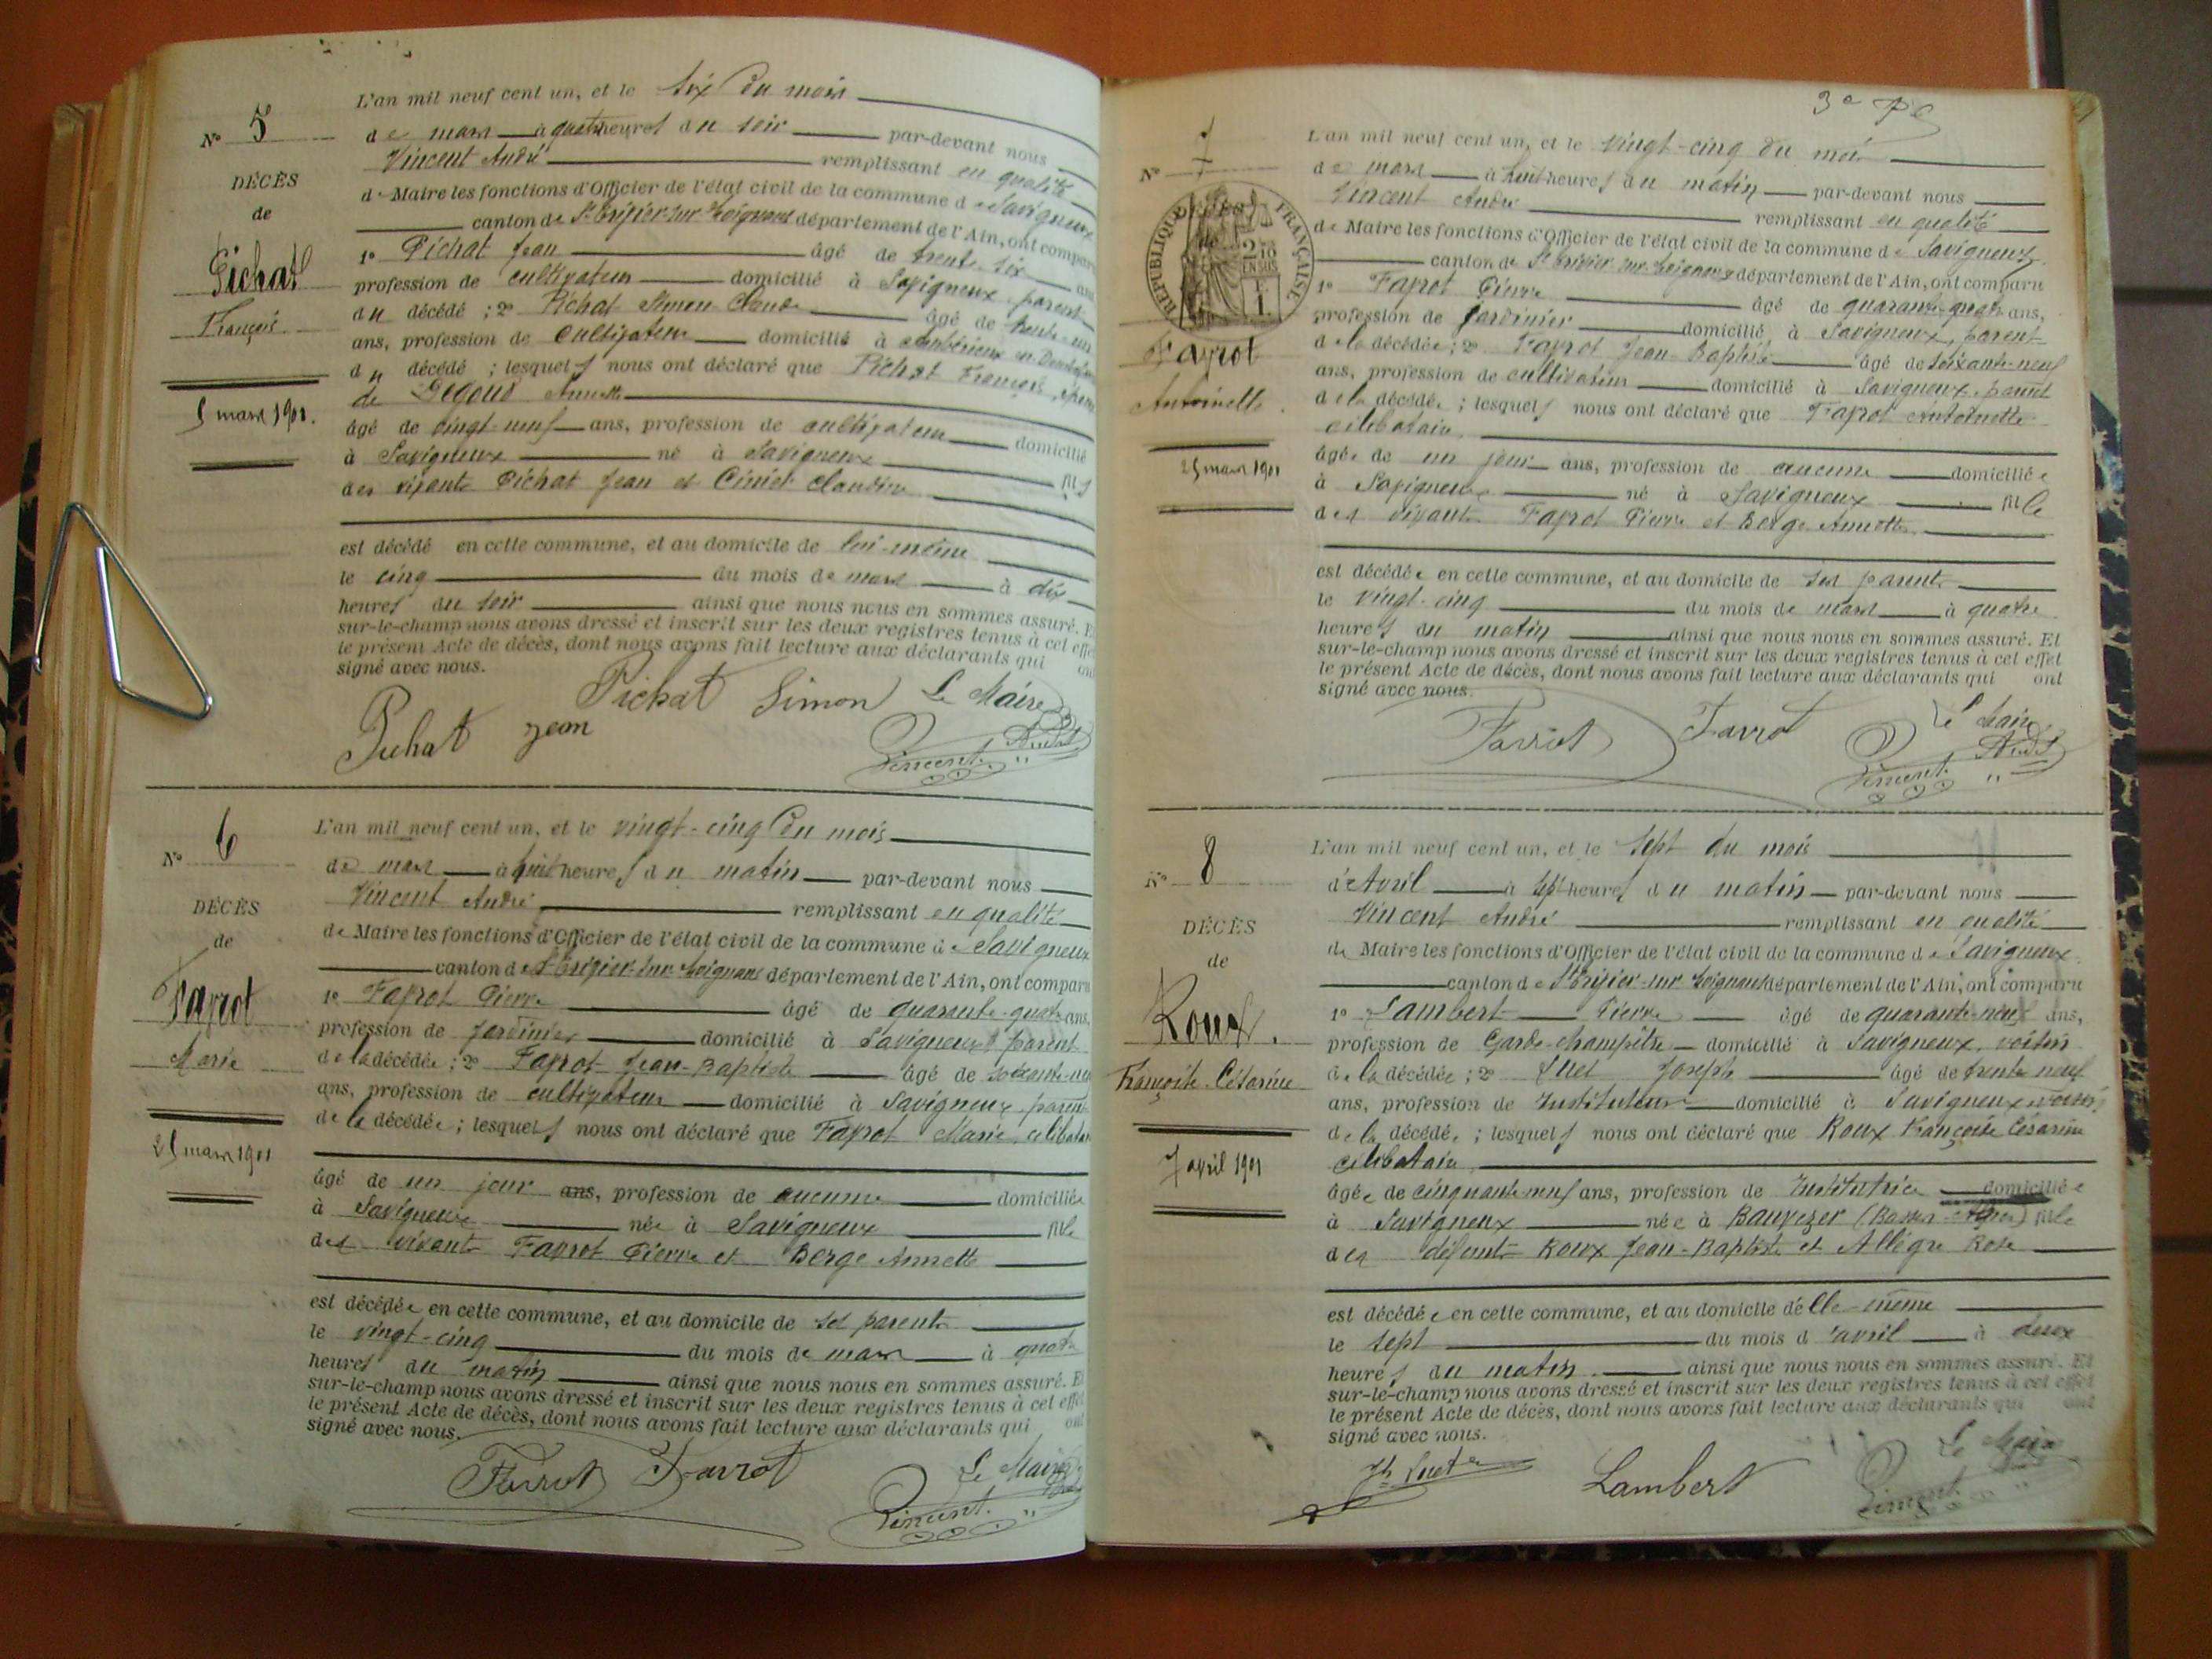 N° 5
DÉCÈS
de
Pichat
François
5 mars 1901.
L'an mil neuf cent un, et le six du mois
de mars à quatre heures du soir par-devant nous
Vincent André remplissant en qualité
de Maire les fonctions d'Officier de l'état civil de la commune de Savigneux
canton de St Trivier-sur-Moignans département de l'Ain, ont comparu
1° Pichat Jean âgé de trente-six ans
profession de cultivateur domicilié à Savigneux, parent
du décédé ; 2° Pichat Simon Claude âgé de trente-un
ans, profession de cultivateur domicilié à Ambérieux en Dombes
du décédé ; lesquels nous ont déclaré que Pichat François, époux
de Annette
âgé de vingt-neuf ans, profession de cultivateur domicilié
à Savigneux né à Savigneux fils
des vivants Pichat Jean et Claudine
est décédé en cette commune, et au domicile de lui-même
le cinq du mois de mars à dix
heures du soir ainsi que nous nous en sommes assuré. Et
sur-le-champ nous avons dressé et inscrit sur les deux registres tenus à cet effet
le présent Acte de décès, dont nous avons fait lecture aux déclarants qui ont
signé avec nous.
Pichat Jean Pichat Simon Le Maire
Vincent André
N° 6
DÉCÈS
de
Fayrot
Marie
25 mars 1901
L'an mil neuf cent un, et le vingt-cinq du mois
de mars à huit heures du matin par-devant nous
Vincent André remplissant en qualité
de Maire les fonctions d'Officier de l'état civil de la commune de Savigneux
canton de St Trivier-sur-Moignans département de l'Ain, ont comparu
1° Fayrot Pierre âgé de quarante-quatre ans,
profession de jardinier domicilié à Savigneux parent
de la décédée ; 2° Fayrot Jean-Baptiste âgé de soixante-neuf
ans, profession de cultivateur domicilié à Savigneux, parent
de la décédée ; lesquels nous ont déclaré que Fayrot Marie, célibataire
âgé de un jour ans, profession de aucune domiciliée
à Savigneux née à Savigneux fille
des vivants Fayrot Pierre et Berge Annette
est décédée en cette commune, et au domicile de ses parents
le vingt-cinq du mois de mars à quatre
heures du matin ainsi que nous nous en sommes assuré. Et
sur-le-champ nous avons dressé et inscrit sur les deux registres tenus à cet effet
le présent Acte de décès, dont nous avons fait lecture aux déclarants qui ont
signé avec nous.
Favrot Favrot Le Maire
Vincent
3e
N° 7
RÉPUBLIQUE FRANÇAISE
2/10 EN SUS
Fayrot
Antoinette
25 mars 1901
L'an mil neuf cent un, et le vingt-cinq du mois
de mars à huit heures du matin par-devant nous
Vincent André remplissant en qualité
de Maire les fonctions d'Officier de l'état civil de la commune de Savigneux
canton de St Trivier-sur-Moignans département de l'Ain, ont comparu
1° Fayrot Pierre âgé de quarante-quatre ans,
profession de jardinier domicilié à Savigneux, parent
de la décédée ; 2° Fayrot Jean-Baptiste âgé de soixante-neuf
ans, profession de cultivateur domicilié à Savigneux, parent
de la décédée ; lesquels nous ont déclaré que Fayrot Antoinette
célibataire
âgée de un jour ans, profession de aucune domiciliée
à Savigneux né à Savigneux fille
des vivants Fayrot Pierre et Berge Annette
est décédée en cette commune, et au domicile de ses parents
le vingt-cinq du mois de mars à quatre
heures du matin ainsi que nous nous en sommes assuré. Et
sur-le-champ nous avons dressé et inscrit sur les deux registres tenus à cet effet
le présent Acte de décès, dont nous avons fait lecture aux déclarants qui ont
signé avec nous.
Favrot Favrot Le Maire
Vincent André
N° 8
DÉCÈS
de
Roux.
Françoise Césarine
7 avril 1901
L'an mil neuf cent un, et le sept du mois
d'Avril à sept heures du matin par-devant nous
Vincent André remplissant en qualité
de Maire les fonctions d'Officier de l'état civil de la commune de Savigneux
canton de St Trivier-sur-Moignans département de l'Ain, ont comparu
1° Lambert Pierre âgé de quarante-neuf ans,
profession de Garde-champêtre domicilié à Savigneux, voisin
de la décédée ; 2° Suet Joseph âgé de trente neuf
ans, profession de Instituteur domicilié à Savigneux voisin
de la décédée ; lesquels nous ont déclaré que Roux Françoise Césarine
célibataire
âgée de cinquante-neuf ans, profession de Institutrice domiciliée
à Savigneux née à Bauvezer (Basses-Alpes) fille
des défunts Roux Jean-Baptiste et Allègre Rose
est décédée en cette commune, et au domicile d'elle-même
le sept du mois d'avril à deux
heures du matin. ainsi que nous nous en sommes assuré. Et
sur-le-champ nous avons dressé et inscrit sur les deux registres tenus à cet effet
le présent Acte de décès, dont nous avons fait lecture aux déclarants qui ont
signé avec nous.
Jh Suet Lambert Le Maire
Vincent